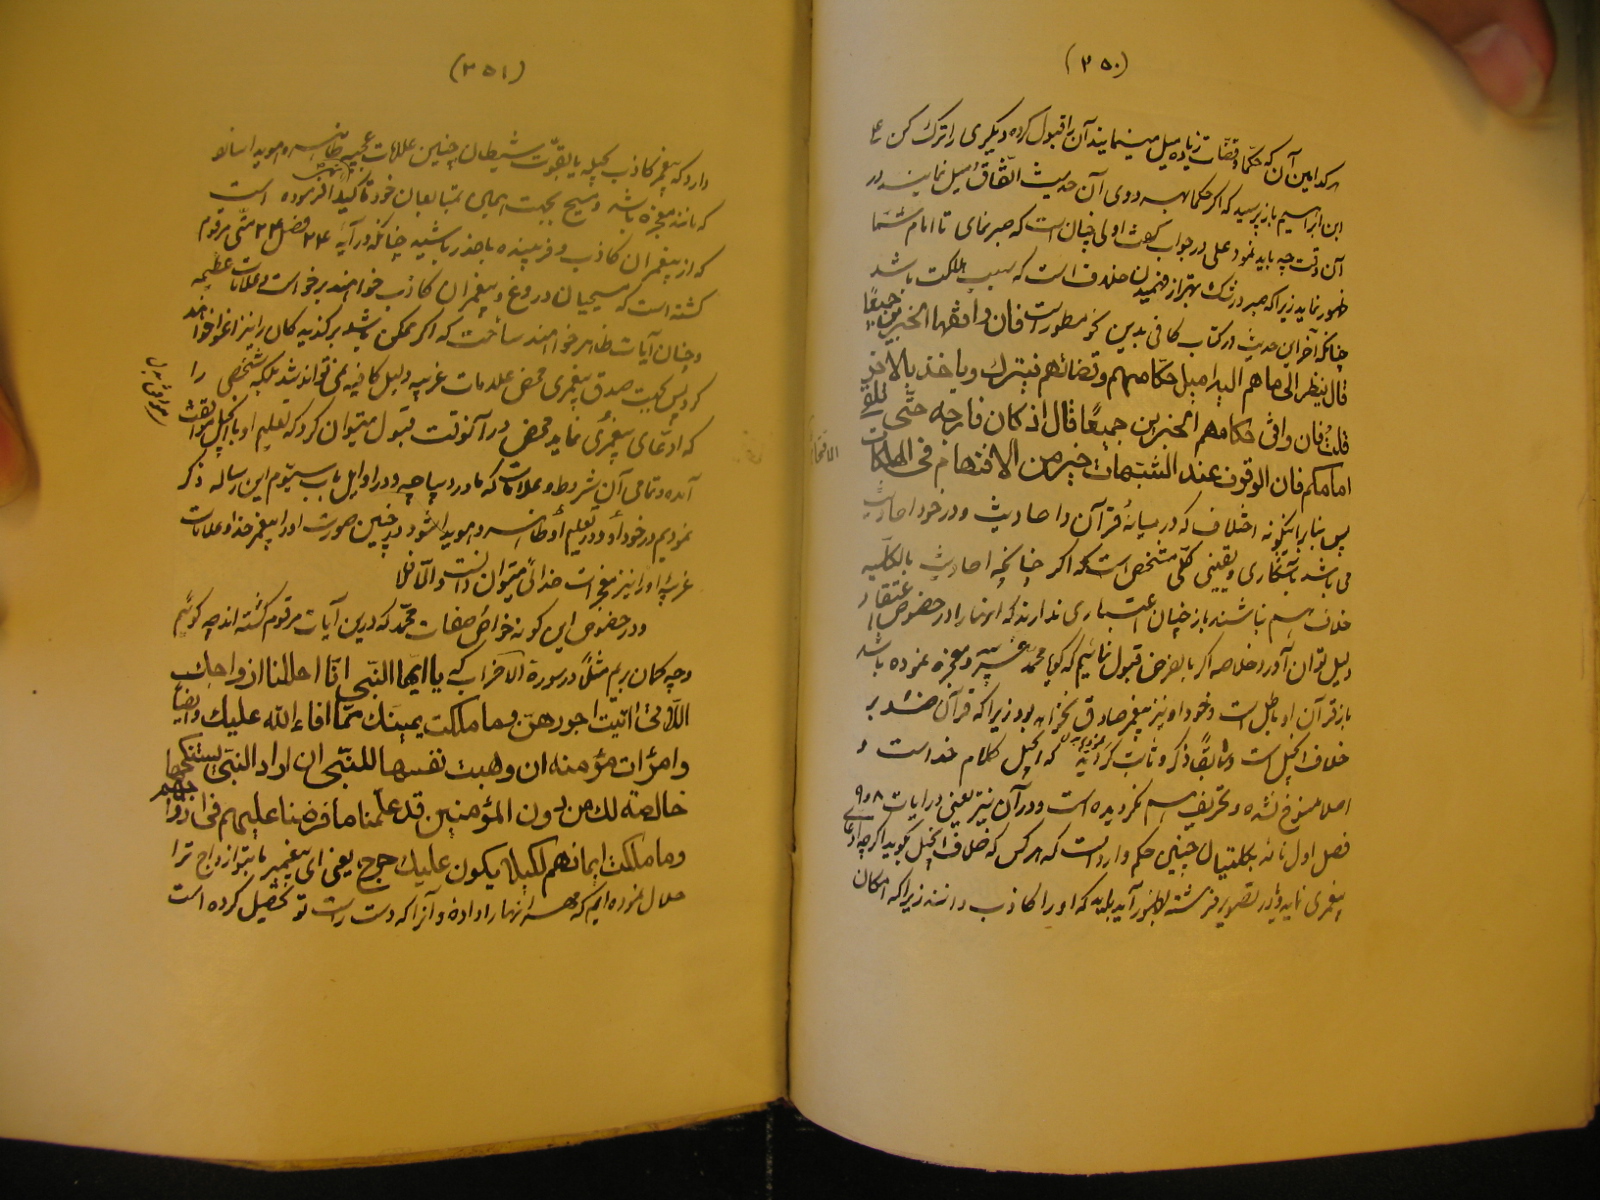 (۲۵۰)
هرکدامین آن که حکما و قضات زیاده میل مینمایند آن را قبول کرده دیگری را ترک کن
ابن ابراهیم باز پرسید که اگر حکما بهر دوی آن حدیث اتفاق میل نمایند در
آن وقت چه باید نمود علی در جواب گفت اولی چنان است که صبر نمای تا امام شما
ظهور نماید زیرا که صبر در شک بهتر از فهمیدن است که سبب هلاکت باشد
چنانکه آخر این حدیث در کتاب کافی بدین نحو مسطور است فان وافقها الخبرین جمیعًا
قال ینظر الی ما هم الیه امیل حکامهم و قضائهم فیترک و یاخذ بالاخر
قلت فان وافق حکامهم الخبرین جمیعًا قال اذ کان فارجه حتّی تلقی
امامکم فان الوقوف عند الشبهات خیر من الاقتحام فی الهلکات
الاقتحام
پس بنابر اینگونه اختلاف که در میانهٔ قرآن و احادیث و در خود احادیث
می باشد بآشکاری و یقینی کلّی مشخص است که اگر چنانچه احادیث بالکلیه
خلاف هم نباشند باز چنان اعتباری ندارند که آنها را در خصوص اعتقاد
دلیل توان آورد خلاصه اگر بالفرض قبول نمائیم که گویا محمد معجزه نموده باشد
باز قرآن او باطل است و خود او نیز پیغمبر صادق نخواهد بود زیرا که قرآن ضد بر
خلاف انجیل است و سابقًا ذکر و ثابت گردیده که انجیل کلام خداست و
اصلا منسوخ نشده و تحریف هم نگردیده است و در آن نیز یعنی در آیات ۸ و ۹
فصل اول نامه بکلتیان چنین حکم وارد است که هرکس که خلاف انجیل بگوید اگر چه ادعای
پیغمبری نماید و در تصویر فرشته بظهور آید باید که او را کاذب دانند زیرا که امکان
(۲۵۱)
دارد که پیغمبر کاذب بحیله یا بقوّت شیطان چنین علامات عجیبه ظاهر و هویدا سازد
که مانند معجزه باشد و مسیح بجهت همین بمتابعان خود تاکید فرموده است
که از پیغمبران کاذب و فریبنده باحذر باشید چنانکه در آیهٔ ۲۴ فصل ۲۴ متّی مرقوم
گشته است که مسیحیان دروغ و پیغمبران کاذب خواهند برخواست و علامات عظیمه
و چنان آیات ظاهر خواهند ساخت که اگر ممکن باشد برگزیدگان را نیز اغوا خواهند
کرد پس بجهت صدق پیغمبری محض علامات غریبه دلیل کافیه نمی تواند شد بلکه شخصی را
که ادعای پیغمبری نماید محض در آنوقت قبول میتوان کرد که تعلیم او با انجیل موافقت
آمده و تمامی آن شروط و علامات که ما در دیباچه و در اوایل باب سیوم این رساله ذکر
نمودیم در خود او و در تعلیم او ظاهر و هویدا شود در چنین صورت او را پیغمبر خدا و علامات
غریبهٔ او را نیز معجزات خدائی میتوان دانست والّا فلا
و در خصوص این گونه خواص صفات محمّد که درین آیات مرقوم گشته اند چه گوئیم
و چه گمان بریم مثلًا در سورة الاحزاب که یا ایّها النّبی انّا احللنا لک ازواجک
اللّاتی اتیت اجورهنّ و ما ملکت یمینک ممّا افاء الله علیک وایضا
و امرأت مؤمنه ان وهبت نفسها للنّبّی ان اراد النبّی ان یستنکحها
خالصة لک من دون المؤمنین قد علمنا ما فرضنا علیهم فی ازواجهم
و ما ملکت ایمانهم لکیلا یکون علیک حرج یعنی ای پیغمبر ما بتو ازواج ترا
حلال نموده ایم که مهر آنها را داده و آنرا که دست راست تو تحصیل کرده است